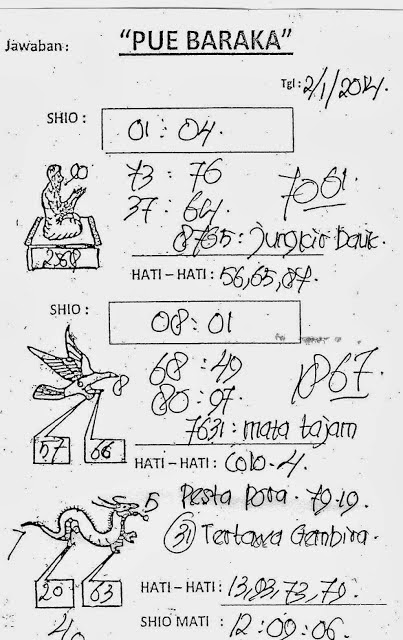 Jawaban :
"PUE BARAKA"
Tgl : 2/1/2014.
SHIO :
01 : 04.
73 : 76
37 : 64.
7061.
8735 : Jungkir bauk.
HATI – HATI : 56,65,87.
SHIO :
08 : 01
8
68 : 49
80 : 97.
1867.
7631 : mata tajam
57
66
HATI – HATI : Colo - 4.
Pesta pora . 79.19.
5
31 Tertawa Gembira .
7
20
63
HATI – HATI : 13,93,73,79.
SHIO MATI : 12 : 09 : 06.